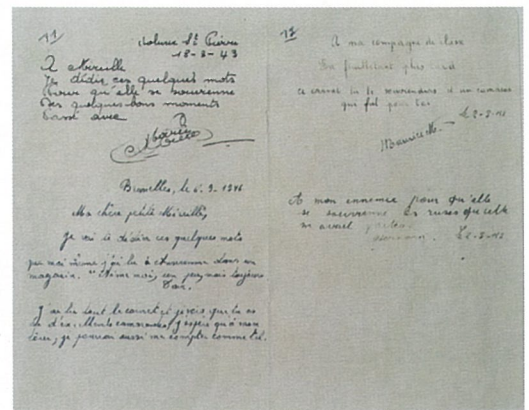 11
Woluwe St Pierre
18-3-43
A Mireille
Je dédie ces quelques mots
Pour qu'elle se souvienne
Des quelques bons moments
Passé avec
Bruxelles, le 6.3.1946
Ma chère petite Mireille,
Je vais te dédier ces quelques mots
que moi-même j'ai lu à dans un
magasin. "Aime moi, peu, mais toujours
J'ai lu tout le carnet et je vois que tu as
camarades, j'espère qu'à mon
je pourrai aussi me compter comme tel.
12
A ma compagne de classe
En feuilletant plus tard
ce carnet tu te souviendra d'un camarade
qui fut pour toi
Le 2-2-42
Maurice M.
A mon ennemie pour qu'elle
se souvienne les ruses qu'elle
m'avait
2-2-42